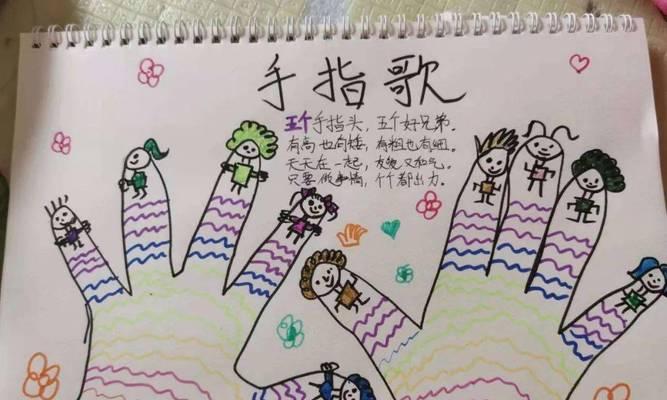 手指歌
五个手指头，五个好兄弟。
有高也有矮，有粗也有细。
天天在一起，友爱又和气。
只要做事情，个个都出力。